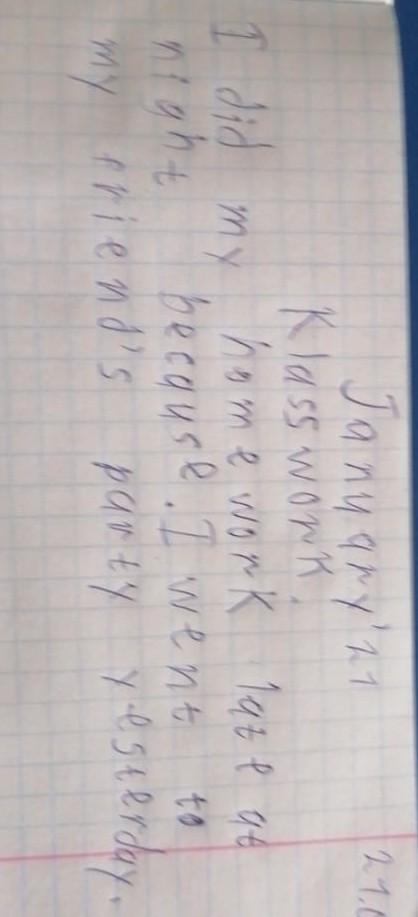 21.
January'21
Klasswork.
I did my homework late at
night because. I went to
my friend's party yesterday.